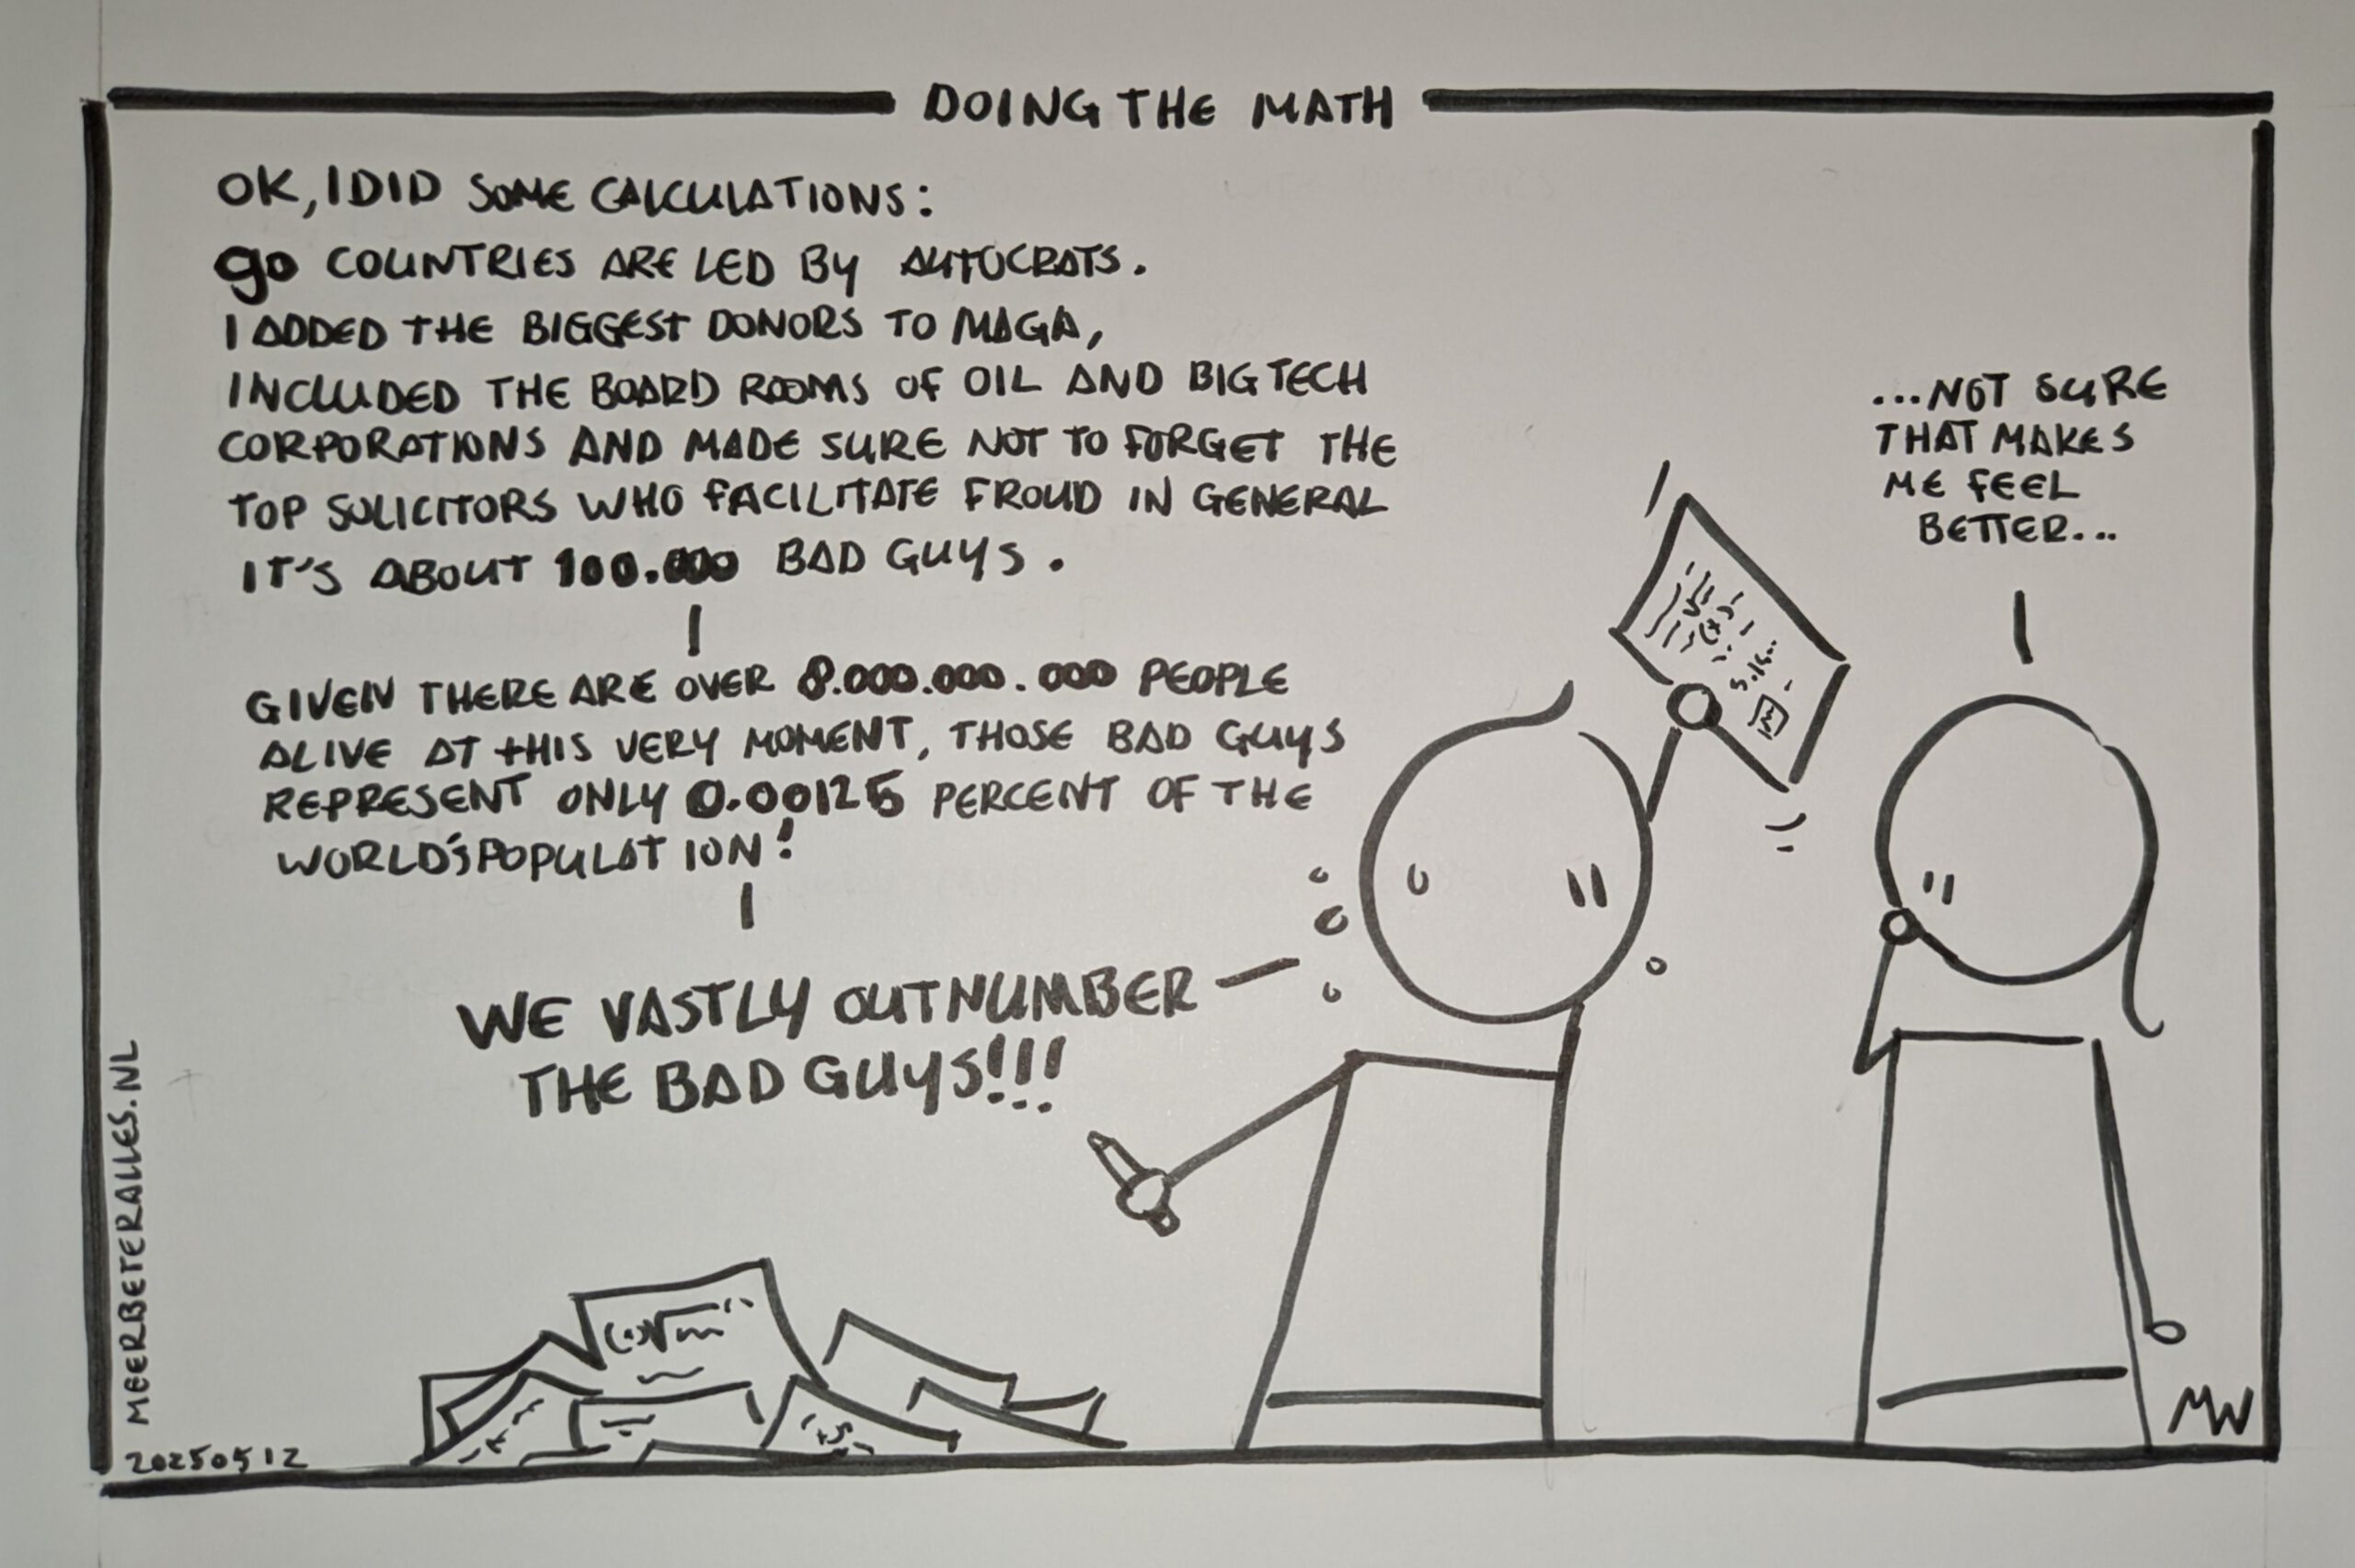 DOING THE MATH
OK, I DID SOME CALCULATIONS:
90 COUNTRIES ARE LED BY AUTOCRATS.
I ADDED THE BIGGEST DONORS TO MAGA,
INCLUDED THE BOARD ROOMS OF OIL AND BIG TECH
CORPORATIONS AND MADE SURE NOT TO FORGET THE
TOP SOLICITORS WHO FACILITATE FROUD IN GENERAL
IT'S ABOUT 100.000 BAD GUYS.
GIVEN THERE ARE OVER 8.000.000.000 PEOPLE
ALIVE AT THIS VERY MOMENT, THOSE BAD GUYS
REPRESENT ONLY 0.00125 PERCENT OF THE
WORLD'S POPULATION!
WE VASTLY OUTNUMBER
THE BAD GUYS!!!
...NOT SURE
THAT MAKES
ME FEEL
BETTER...
MEERBETERALLES.NL
20250512
MW